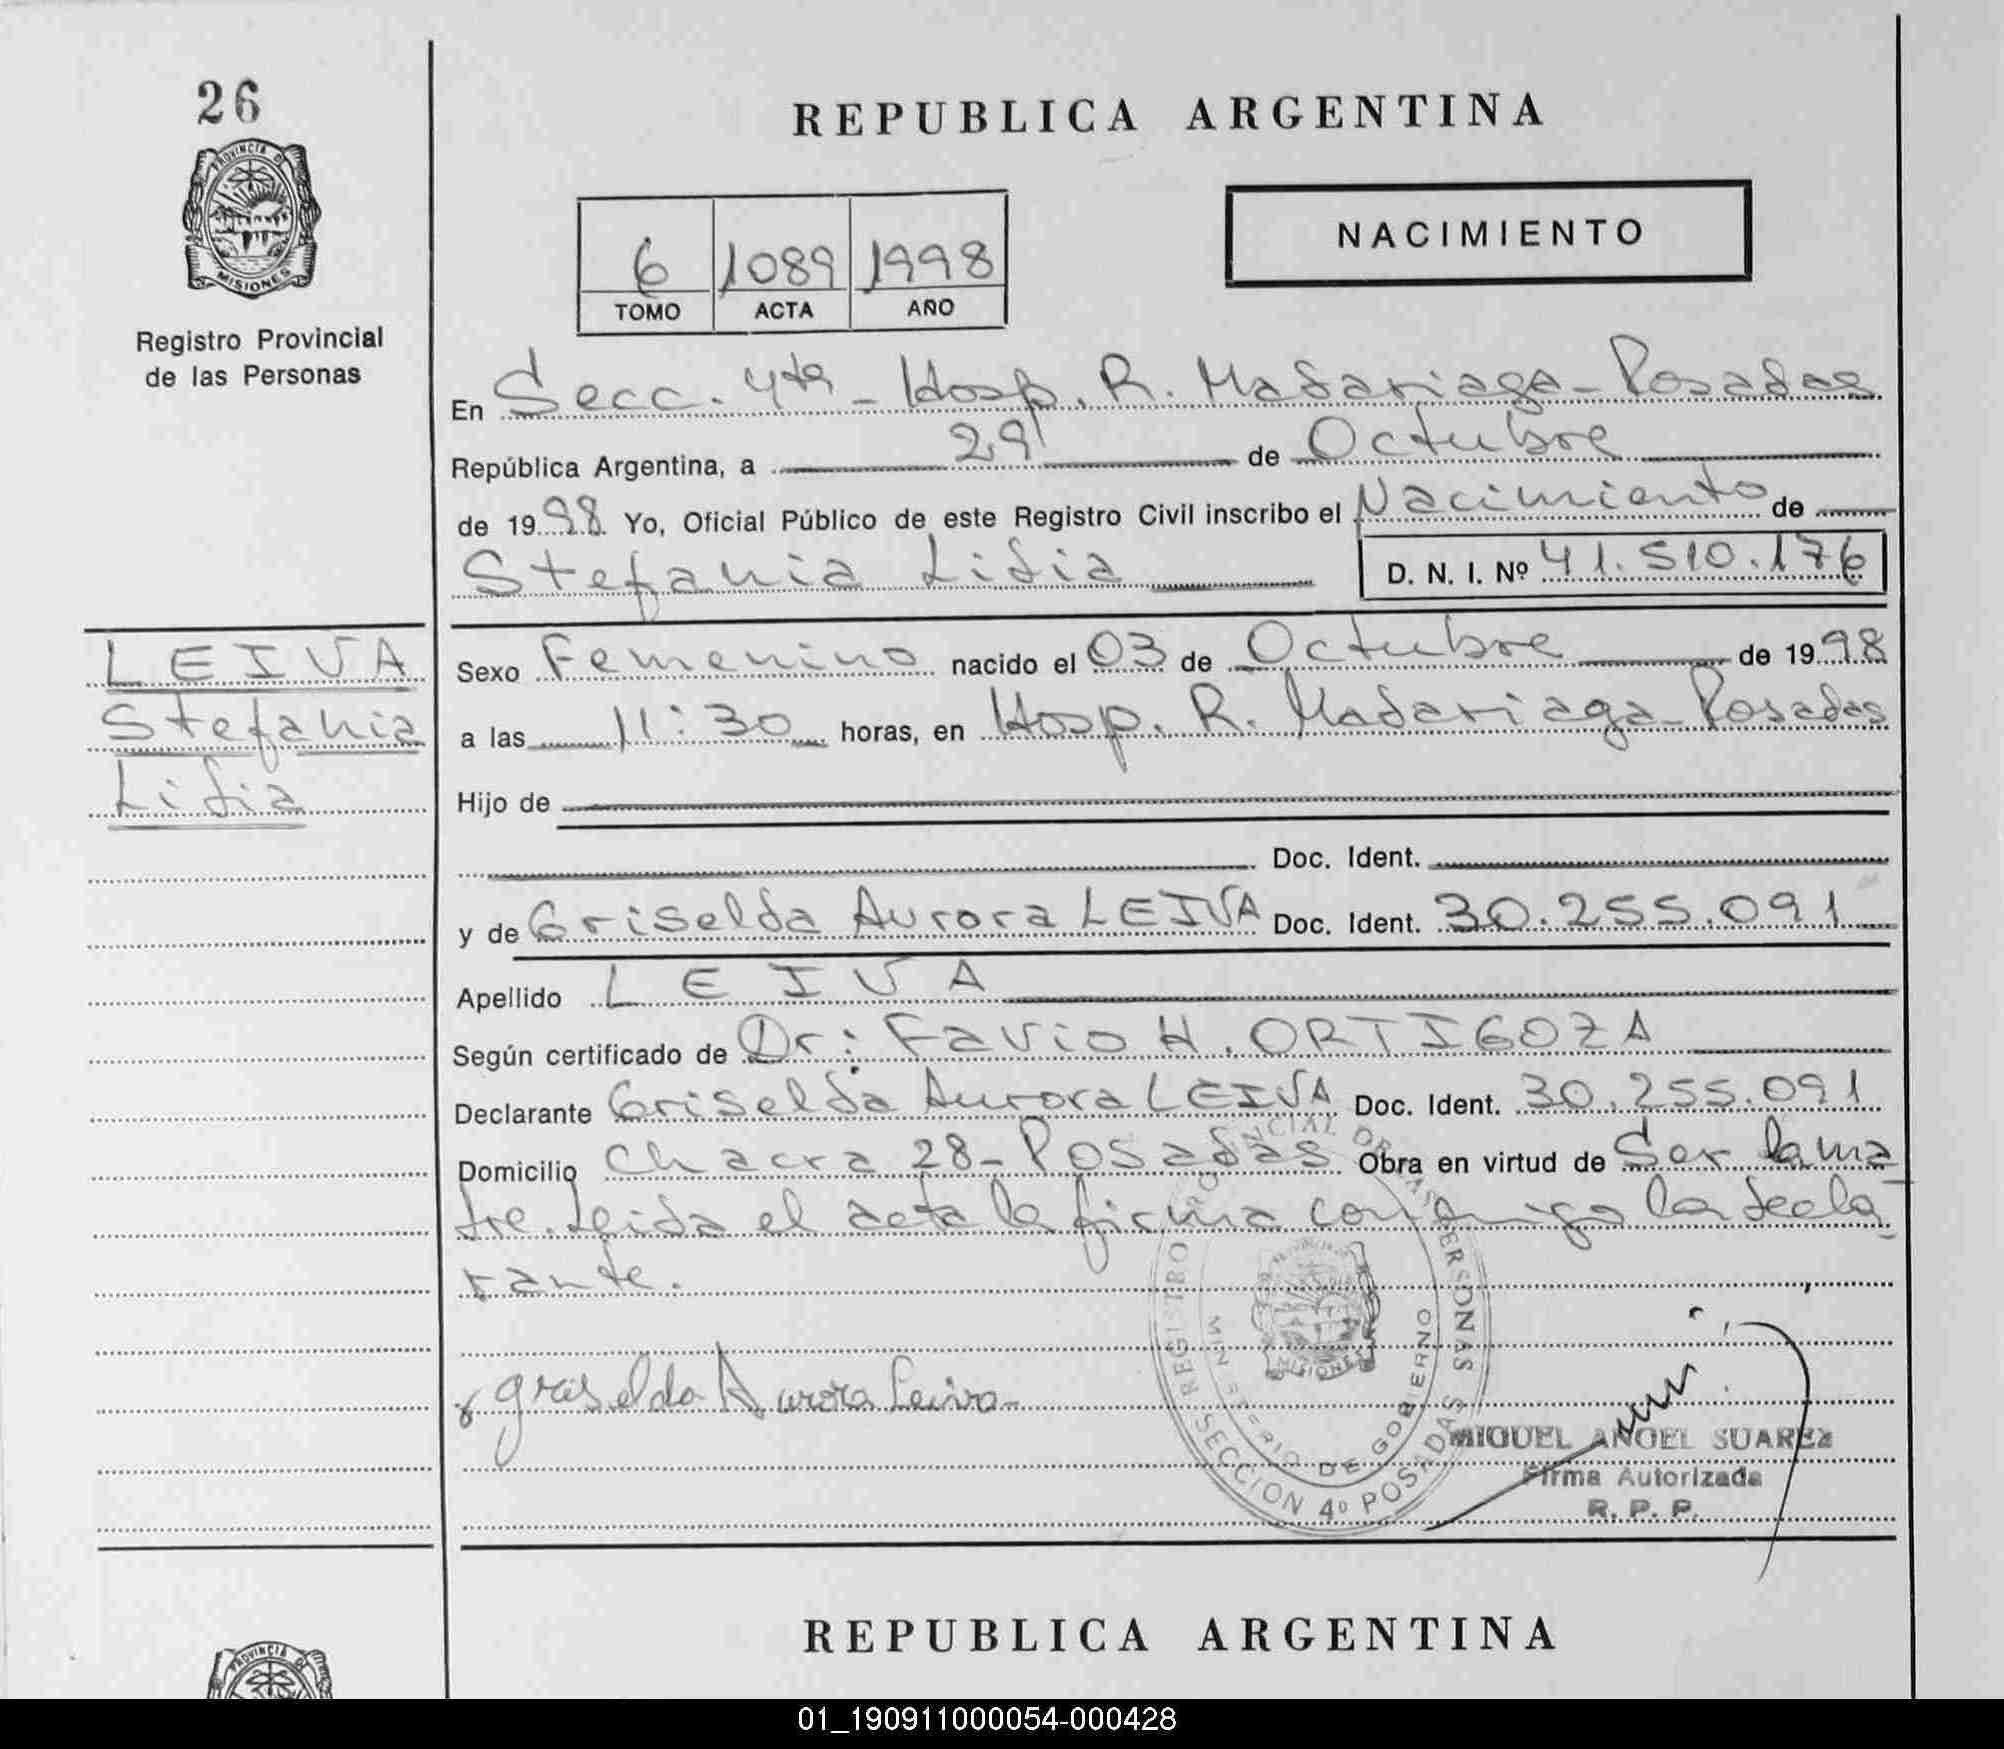 26
REPUBLICA ARGENTINA
PROVINCIA DE
MISIONES
Registro Provincial
de las Personas
6 1089 1998
TOMO ACTA AÑO
NACIMIENTO
En Secc. 4ta - Hosp. R. Madariaga - Posadas
República Argentina, a 29 de Octubre
de 1998 Yo, Oficial Público de este Registro Civil inscribo el Nacimiento de
Stefania Lidia D. N. I. Nº 41.510.176
LEIVA
Stefania
Lidia
Sexo Femenino nacido el 03 de Octubre de 1998
a las 11:30 horas, en Hosp. R. Madariaga - Posadas
Hijo de
Doc. Ident.
y de Griselda Aurora LEIVA Doc. Ident. 30.255.091
Apellido LEIVA
Según certificado de Dr: Favio H. ORTIGOZA
Declarante Griselda Aurora LEIVA Doc. Ident. 30.255.091
Domicilio Chacra 28 - Posadas Obra en virtud de Ser la ma
dre. Leida el acta la firma conmigo la decla
rante.
Griselda Aurora Leiva
REGISTRO PROVINCIAL DE LAS PERSONAS
SECCION 4º POSADAS
MINISTERIO DE GOBIERNO
MISIONES
MIGUEL ANGEL SUAREZ
Firma Autorizada
R. P. P.
REPUBLICA ARGENTINA
PROVINCIA DE
01_190911000054-000428